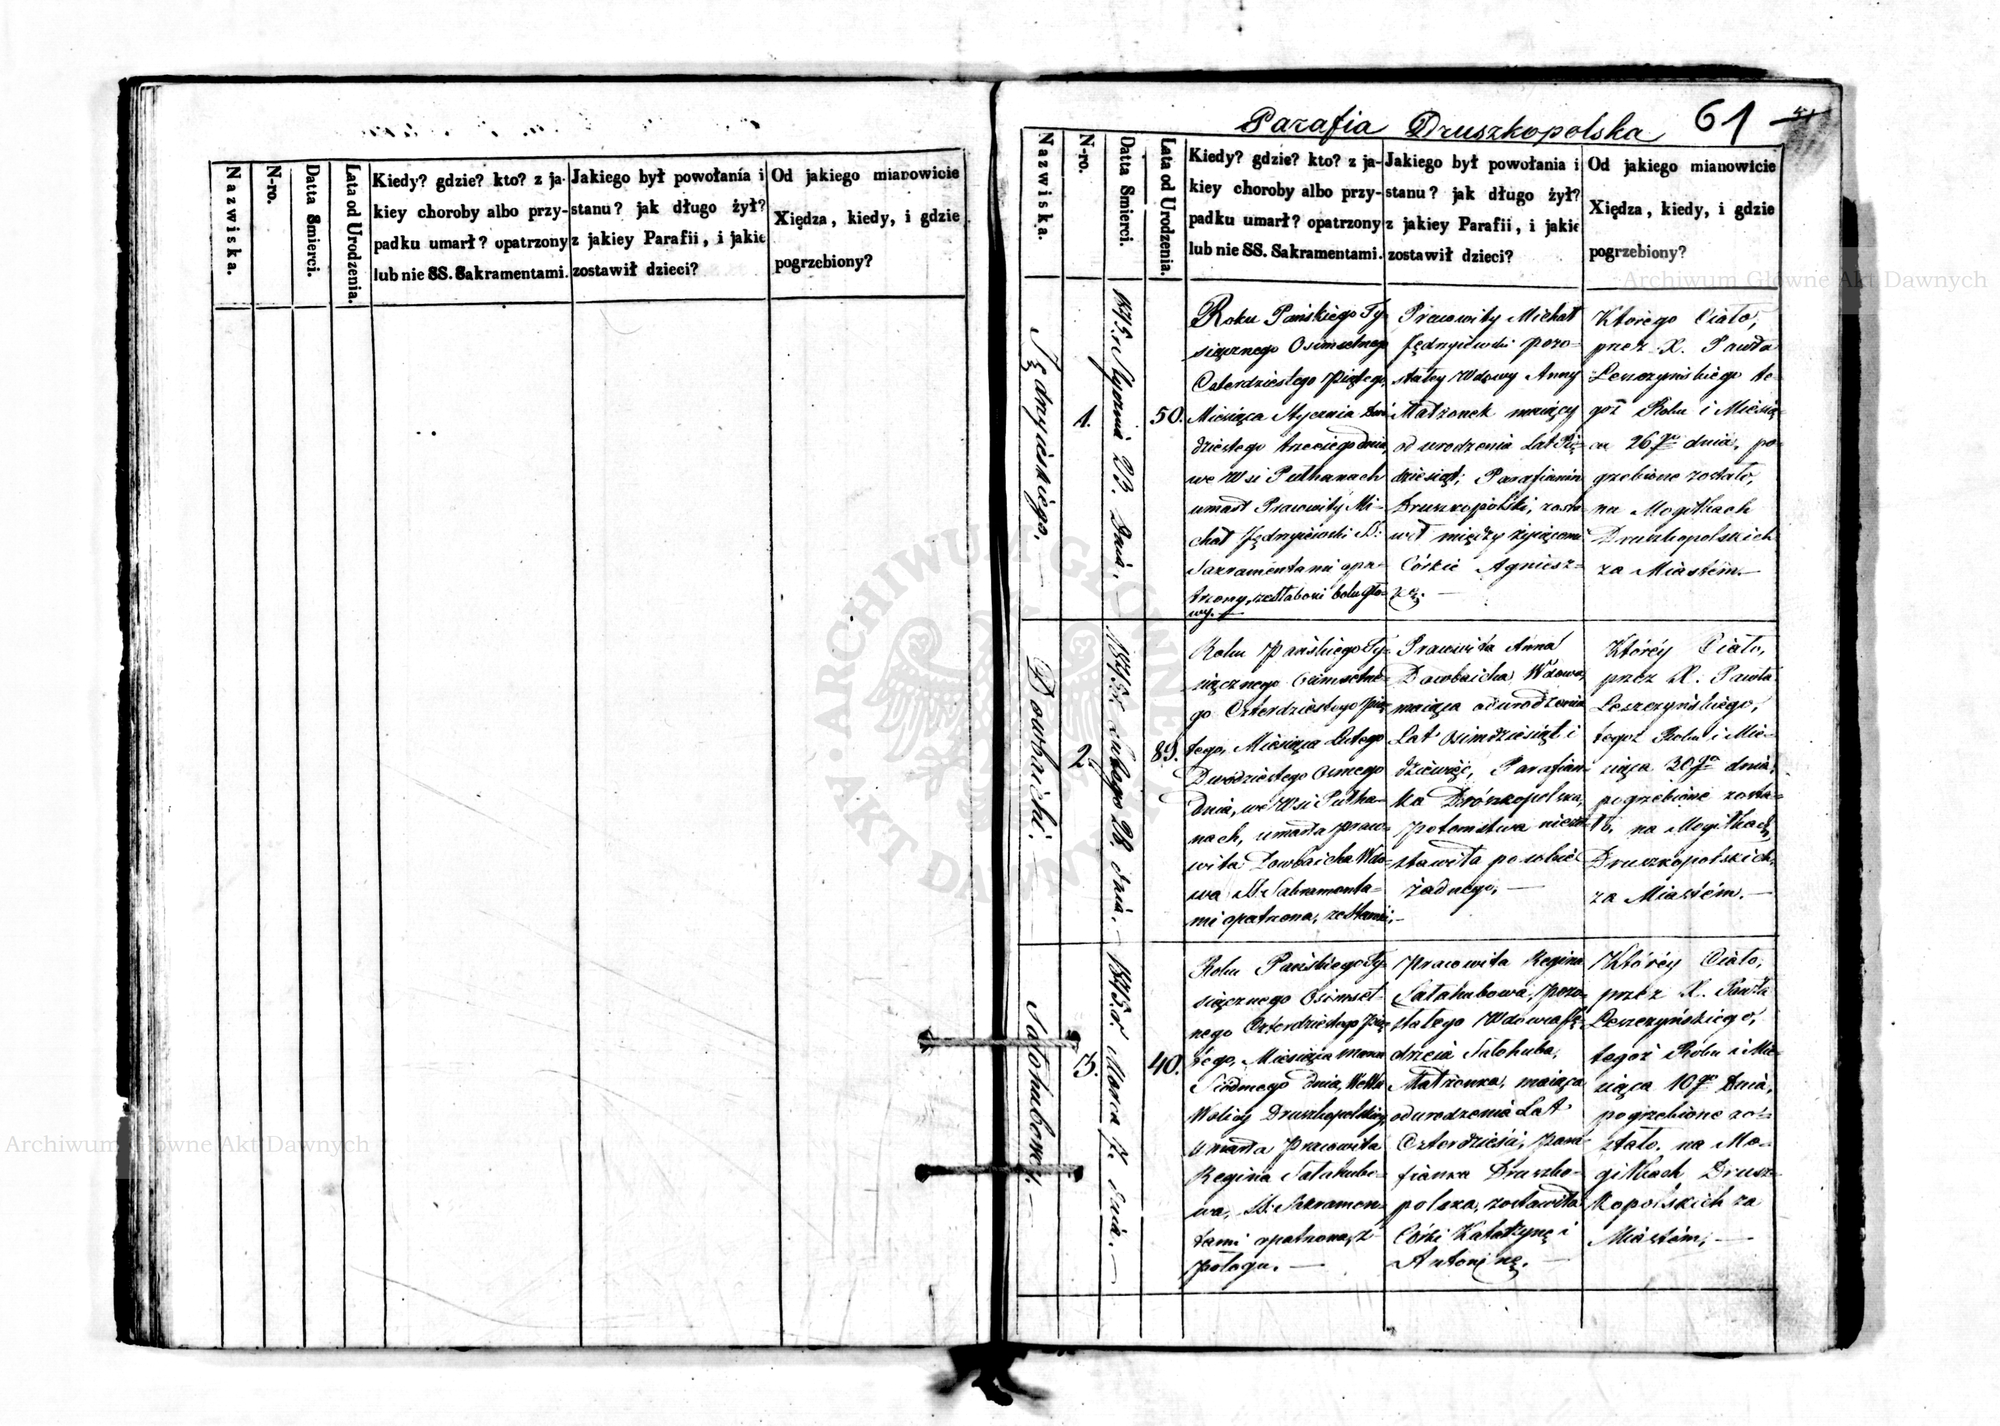 Nazwiska.
N-ro.
Datta Smierci.
Lata od Urodzenia.
Kiedy? gdzie? kto? z ja-
kiey choroby albo przy-
padku umarł? opatrzony
lub nie SS. Sakramentami.
Jakiego był powołania i
stanu? jak długo żył?
z jakiey Parafii, i jakie
zostawił dzieci?
Od jakiego mianowicie
Xiędza, kiedy, i gdzie
pogrzebiony?
Parafia Druszkopolska
61
Nazwiska.
N-ro.
Datta Smierci.
Lata od Urodzenia.
Kiedy? gdzie? kto? z ja-
kiey choroby albo przy-
padku umarł? opatrzony
lub nie SS. Sakramentami.
Jakiego był powołania i
stanu? jak długo żył?
z jakiey Parafii, i jakie
zostawił dzieci?
Od jakiego mianowicie
Xiędza, kiedy, i gdzie
pogrzebiony?
1.
1845 r. Stycznia 23. Dnia.
50.
Roku Pańskiego Ty-
siącznego Osimsetnego
Czterdziestego Piątego,
Miesiąca Stycznia dwu-
dziestego trzeciego dnia,
we Wsi Pułhanach
umarł Pracowity Mi-
chał
Sakramentami opa-
trzony, ze słabości bolu gło-
wy.
Pracowity Michał
pozo-
stałey Wdowy Anny
Małżonek maiący
od urodzenia Lat Pię-
dziesiąt; Parafianin
Druszkopolski, zosta-
wił między żyiącemi
Córkie Agniesz-
kę.
Którego Ciało,
przez X. Pawła
Leszczyńskiego te-
goż Roku i Miesią-
ca 26go dnia, po-
grzebione zostało,
na Mogiłkach
Druszkopolskich
za Miastém.
2.
1845 r. Lutego 28. dnia.
89.
Roku Pańskiego Ty-
siącznego Osimsetne-
go Czterdziestego Pią-
tego, Miesiąca Lutego
Dwódziestego Osmego
Dnia, we Wsi Pułha-
nach, umarła praco-
wita Wdo-
wa SS. Sakramenta-
mi opatrzona,
Pracowita Anna
Wdowa,
maiąca od urodzenia
Lat Osimdziesiąt i
dziewięć, Parafian-
ka Drószkopolska,
potomstwa niezo-
stawiła po sobie
żadnego,
Któréy Ciało,
przez X. Pawła
Leszczyńskiego,
tegoż Roku i Mie-
siąca 30go dnia,
pogrzebione zosta-
ło, na Mogiłkach
Druszkopolskich,
za Miastém.
3.
1845 r. Marca 7. dnia.
40.
Roku Pańskiego Ty-
siącznego Osimset-
nego Czterdziestego Pią-
tego, Miesiąca Marca
Siódmego dnia, we Wsi
Wolicy Druszkopolskiey,
Umarła Pracowita
Regina Sałohubo-
wa, SS. Sakramen-
tami opatrzona, z
połogu.
Pracowita Regina
Sałahubowa, pozo-
stałego Wdowca Ję-
drzeia Sałohuba,
Małżonka, maiąca
od urodzenia Lat
Czterdzieści, Para-
fianka Druszko-
polska, zostawiła
Córki Katarzynę i
Antoninę.
Któréy Ciało,
przez X. Pawła
Leszczyńskiego,
tegoż Roku i Mie-
siąca 10go Dnia,
pogrzebione zo-
stało, na Mo-
giłkach Drusz-
kopolskich za
Miastém,
Archiwum Główne Akt Dawnych
Archiwum Główne Akt Dawnych
ARCHIWUM GŁÓWNE AKT DAWNYCH